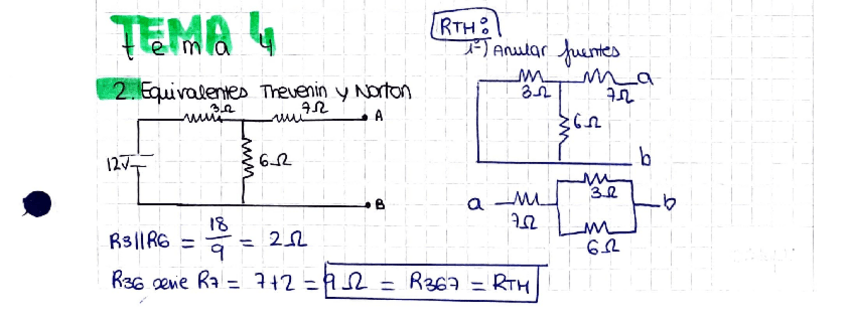 TEMA 4
tema 4
2. Equivalentes Thevenin y Norton
3Ω 7Ω
A
12V
6Ω
B
R3||R6 = 18/9 = 2Ω
R36 serie R7 = 7+2 = 9Ω = R367 = RTH
RTH:
1º) Anular fuentes
a
3Ω 7Ω
6Ω
b
a 7Ω 3Ω b
6Ω